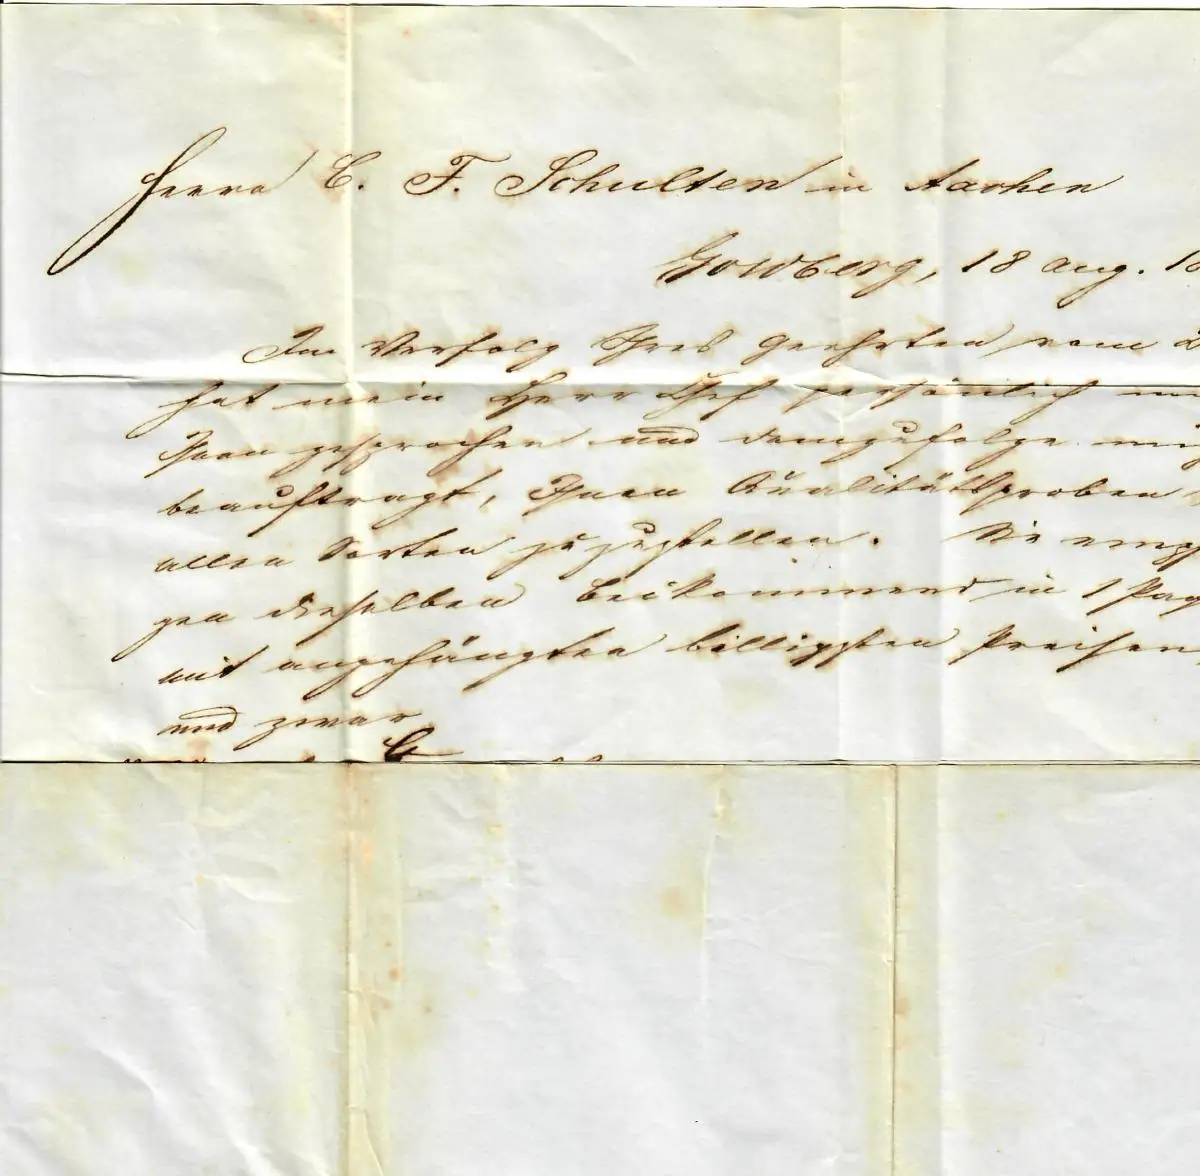 Herrn C. F. Schulten in Aachen
Goldberg, 18 Aug. 18
Im Verfolg Ihres Geehrten vom 2
hat mein Herr Chef persönlich mi
Ihnen gesprochen und demzufolge mich
beauftragt, Ihnen Qualitätsproben
allen Sorten zuzustellen. Sie empf
gen dieselben beikommend in 1 Paq
mit angehängten billigsten Preisen,
und zwar